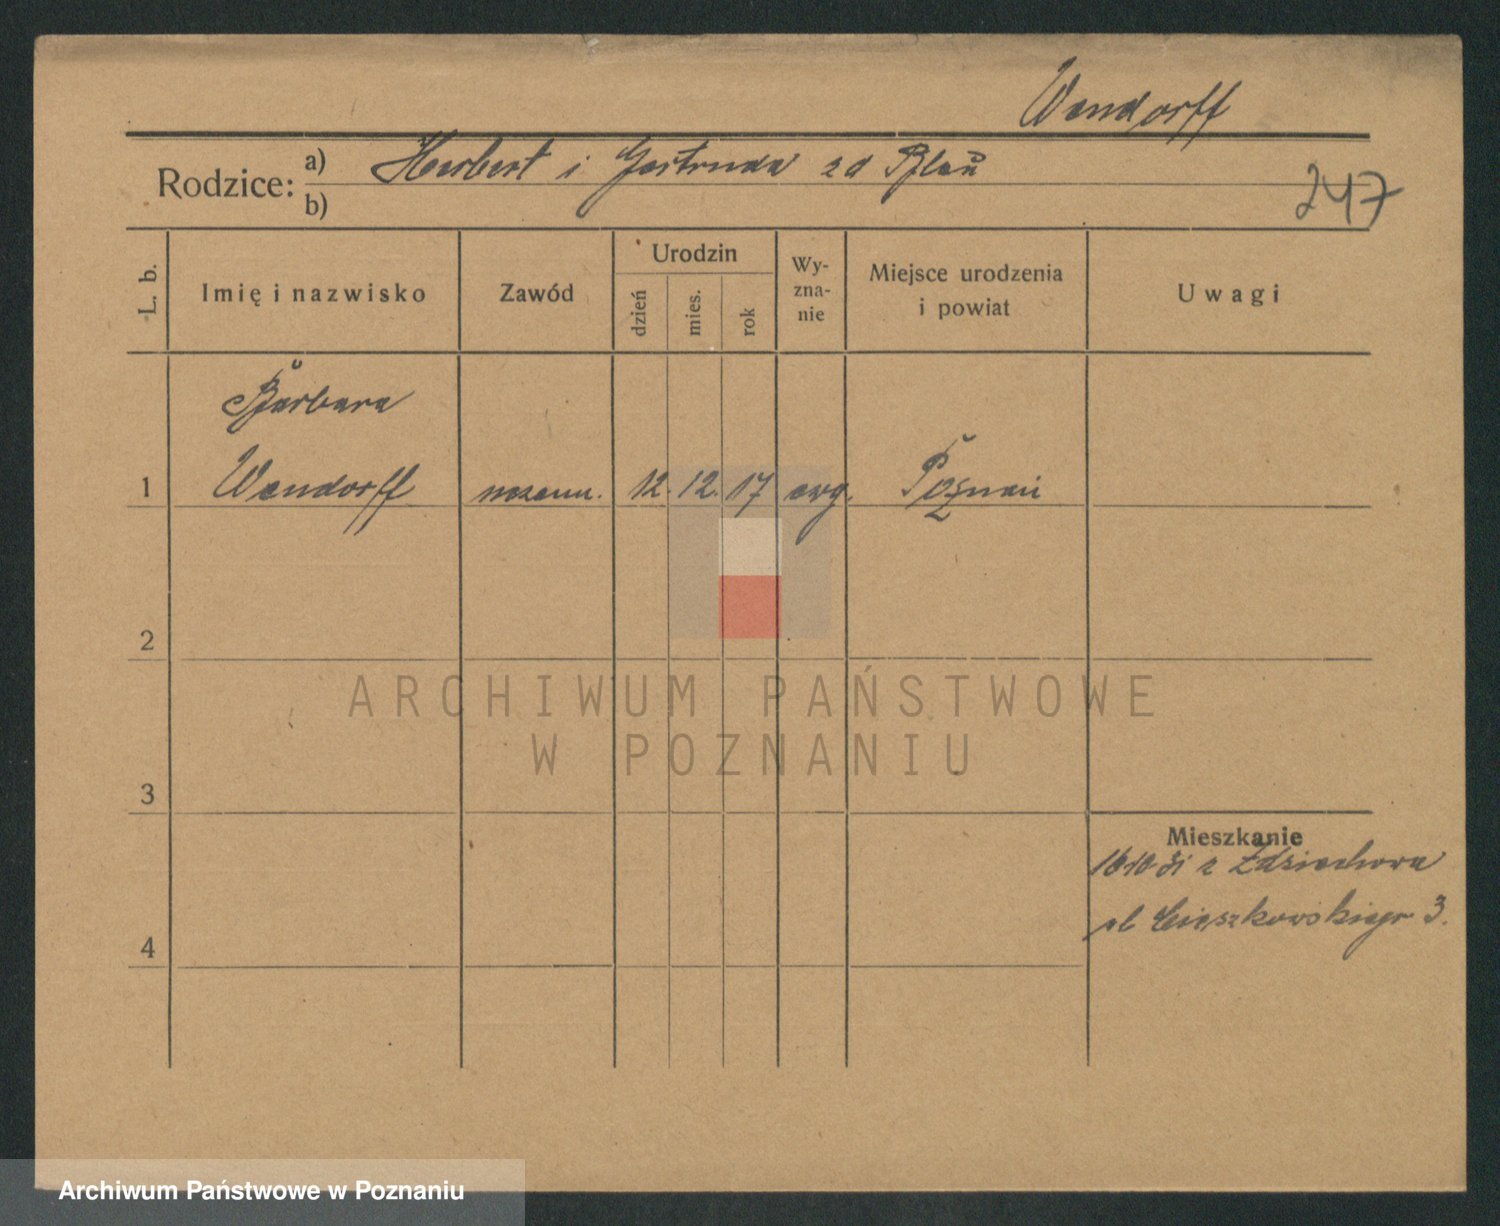 Wendorff
Rodzice: a) Herbert i Gertruda zd
b)
247
L. b.
Imię i nazwisko
Zawód
Urodzin
dzień
mies.
rok
Wy-
zna-
nie
Miejsce urodzenia
i powiat
Uwagi
Barbara
1 Wendorff 12. 12. 17 ewg. Poznań
2
3
4
Mieszkanie
z Zdziechowa
3.
ARCHIWUM PAŃSTWOWE
W POZNANIU
Archiwum Państwowe w Poznaniu